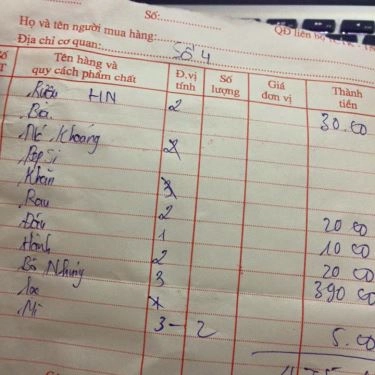 Số:
Họ và tên người mua hàng:
Địa chỉ cơ quan: Số 4
Số Tên hàng và quy cách phẩm chất Đ.vị tính Số lượng Giá đơn vị Thành tiền
Rượu HN 2 30.00
Bia
Nc Khoáng 2
Pepsi
Khăn 3
Rau 2 20 00
Đậu 1 10 00
Hành 2 20 00
Bò Nhúng 3 390 00
Mì 3 - 2 5.00